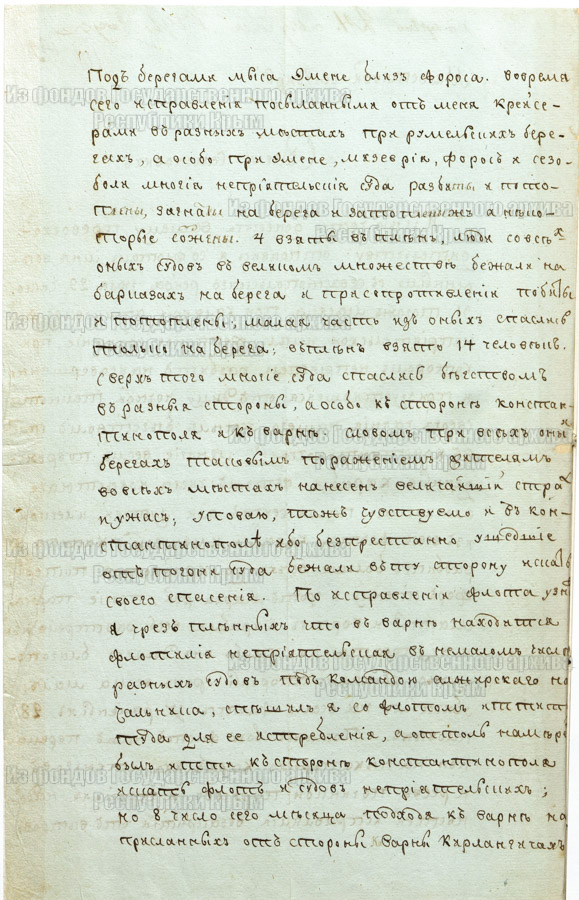 Подъ берегами мыса Эмене близъ Фороса. вовремя
сего исправленія посыланными отъ меня Крейсе-
рами въ разныхъ мѣстахъ при румельскихъ бере-
гахъ, а особо при Эмене, мизевріи, форосъ и сезо-
боли многія непріятельскія суда разбиты и пото-
плены, загнаты на берега и затоплены жъ а нѣко-
торые сожены. 4 взяты въ плѣнъ, люди со всѣх
оныхъ судовъ въ великомъ множествѣ бежали на
барказахъ на берега и при сопротивленіи побиты
и потоплены; малая часть изъ оныхъ спаслись
только на берега; въ плѣнъ взято 14 человѣкъ.
Сверхъ того многіе суда спаслись бегствомъ
въ разныя стороны, а особо къ сторонѣ констан-
тинополя и къ варнѣ. словомъ при всѣхъ оных
берегахъ таковымъ пораженіемъ жителямъ
во всѣхъ мѣстахъ нанесен величайшій страх
и ужасъ; уповаю, тожъ чувствуемо и въ кон-
стантинополѣ ибо безпрестанно ушедшіе
отъ погони суда бежали въ ту сторону искать
своего спасенія. По исправленіи флота узн
я чрезъ плѣнныхъ что въ варнѣ находится
флотилія непріятельская въ немаломъ числе
разныхъ судовъ подъ командою алжирскаго на
чальника, спѣшилъ я со флотомъ итти
туда для ее истребленія, а оттоль намѣре
былъ итти къ сторонѣ константинополя
искать флотъ и судовъ непріятельскихъ;
но 8 число сего мѣсяца подходя къ варнѣ на
присланныхъ отъ стороны Варны Кирлангичахъ
Из фондов Государственного архива
Республики Крым